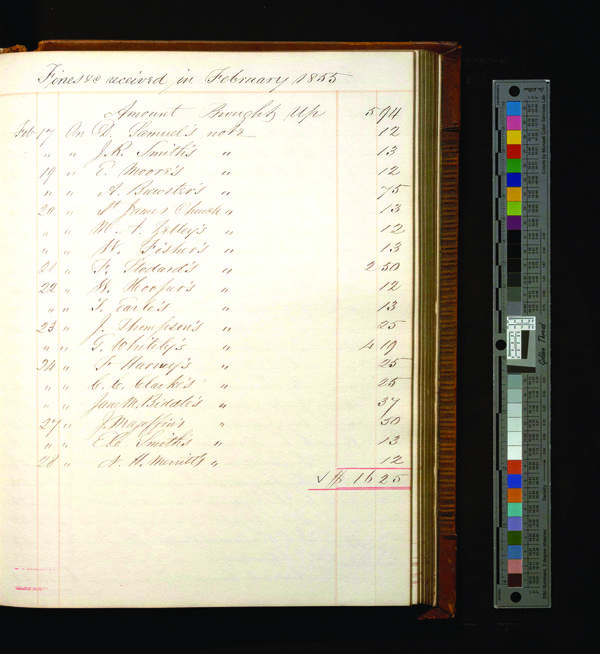 Fines &c received in February 1855
Amount Brought Up 5 94
Feb 17 On D. Samuel's note 12
" " J. R. Smith's " 13
19 " E. Moore's " 12
" " A. Brewster's " 75
20 " St James Church " 13
" " M. A. " 12
" " W. Fisher's " 13
21 " Stodard's " 2 50
22 " W. Hooper's " 12
" " T. Earle's " 13
23 " J. Thompson's " 25
" " G. Whitely's " 4 19
24 " F. Harvey's " 25
" " C. C. Clarke's " 25
" " Jane M. Biddle's " 37
27 " J. " 50
" " Smith's " 13
28 " A. H. Merritt's " 12
√ $ 16 25